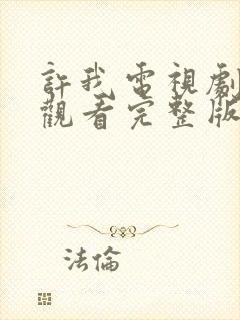 許我電視劇
觀看完整版
法倫